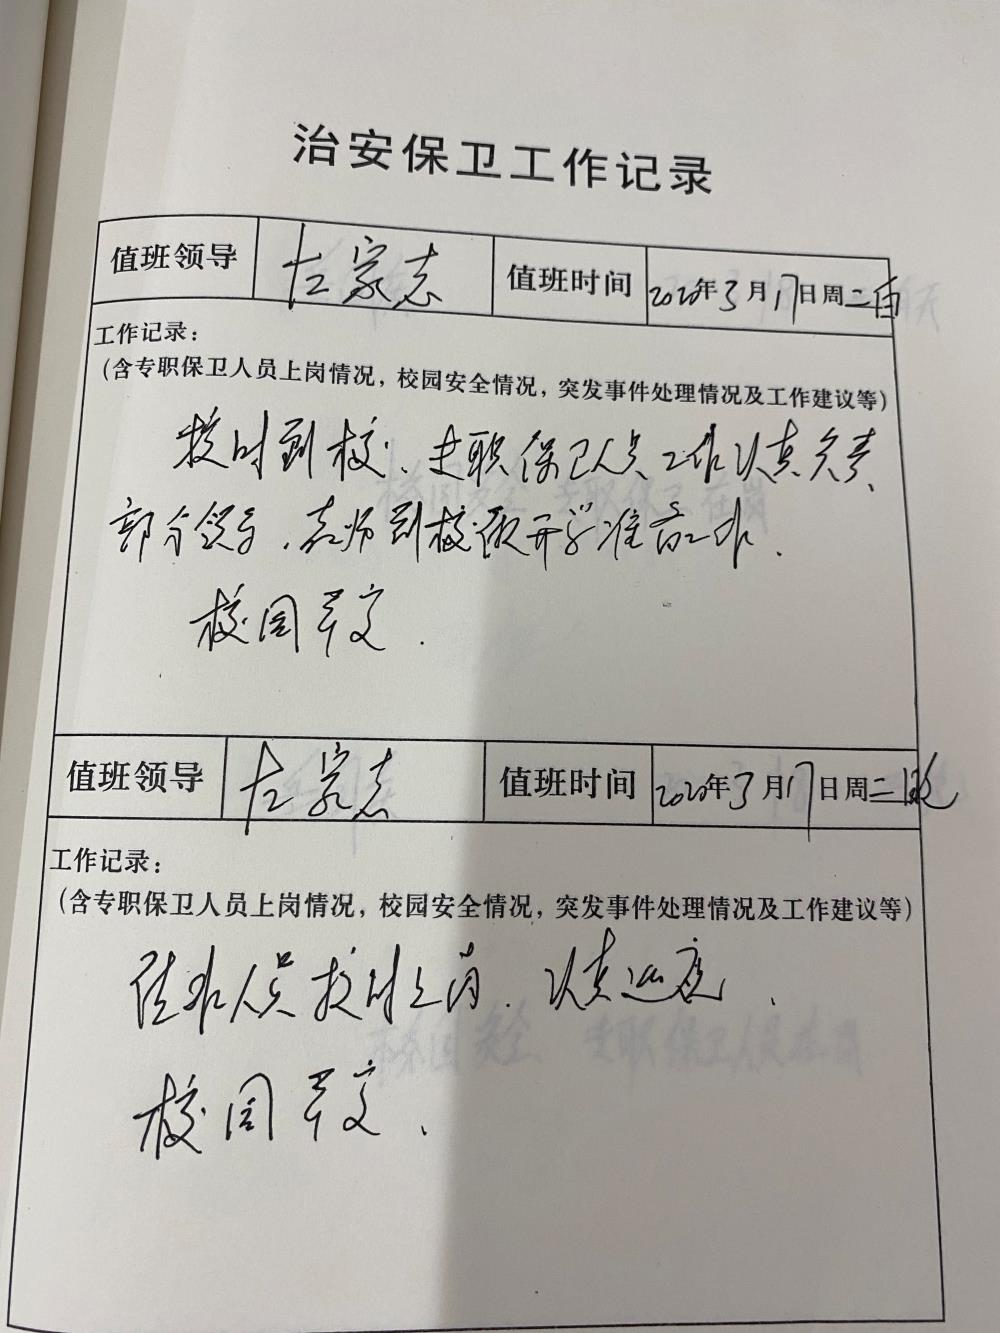 治安保卫工作记录
值班领导 左家志 值班时间 2020年3月17日周二白
工作记录：
（含专职保卫人员上岗情况，校园安全情况，突发事件处理情况及工作建议等）
按时到校、专职保卫人员工作认真负责、
部分领导、教师到校做开学准备工作.
校园平安.
值班领导 左家志 值班时间 2020年3月17日周二晚
工作记录：
（含专职保卫人员上岗情况，校园安全情况，突发事件处理情况及工作建议等）
值班人员按时上岗.认真巡查.
校园平安.